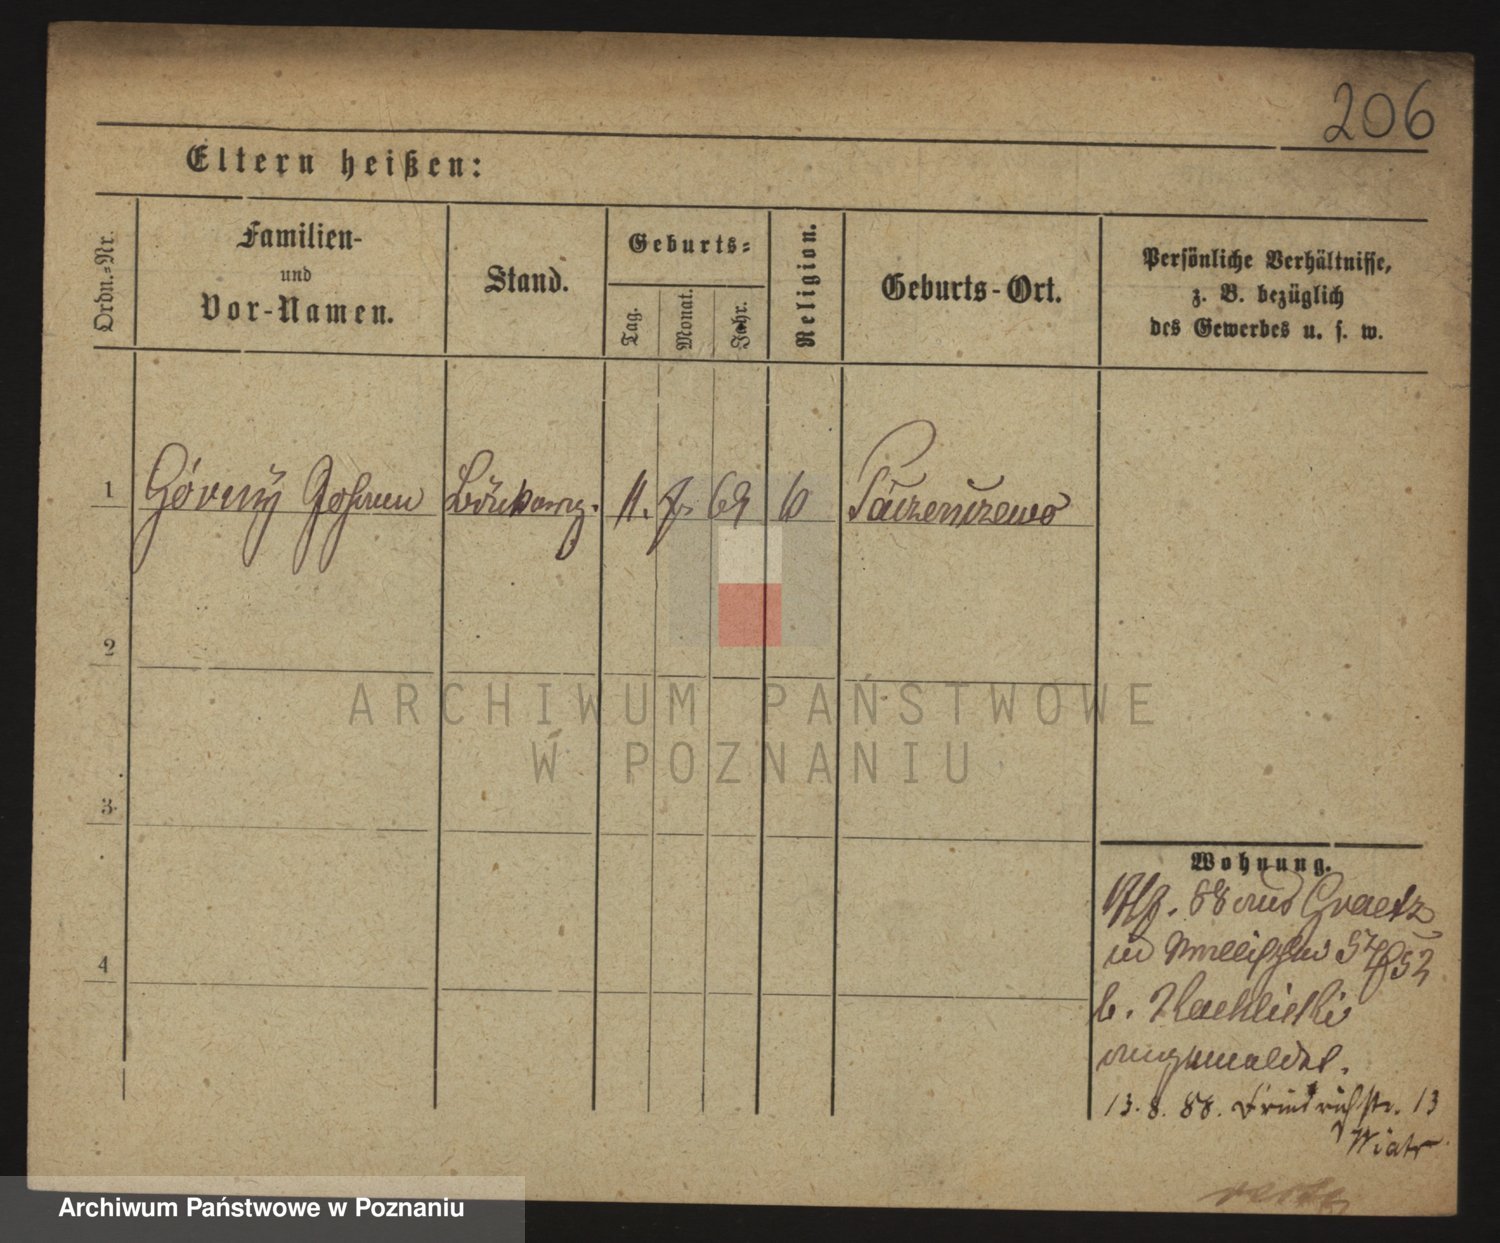 206
Eltern heißen:
Ordn.=Nr.
Familien-
und
Vor-Namen.
Stand.
Geburts=
Tag.
Monat.
Jahr.
Religion.
Geburts-Ort.
Persönliche Verhältnisse,
z. B. bezüglich
des Gewerbes u. s. w.
1 Górny Johann 11. 69
2
3.
4
Wohnung.
88 aus Graetz
in
b.
angemeldet.
13. 8. 88. Friedrichstr. 13
Wiatr
ARCHIWUM PAŃSTWOWE
W POZNANIU
Archiwum Państwowe w Poznaniu